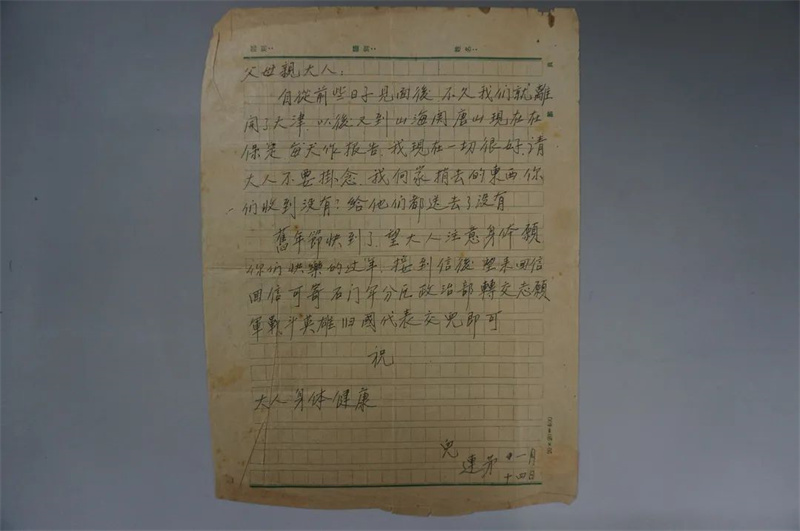 父母親大人：
自從前些日子見面後 不久我们就離
開了天津．以後又到山海関唐山現在在
保定 每天作报告．我現在一切很好．请
大人不要掛念．我何家捎去的東西你
们收到沒有？给他们都送去了沒有
舊年節快到了．望大人注意身体 願
你们快樂的过年．接到信後 望来回信
回信可寄石门军分区政治部轉交志願
軍戰斗英雄归國代表交兒即可
祝
大人身体健康
兒
連弟 十一月
十四日